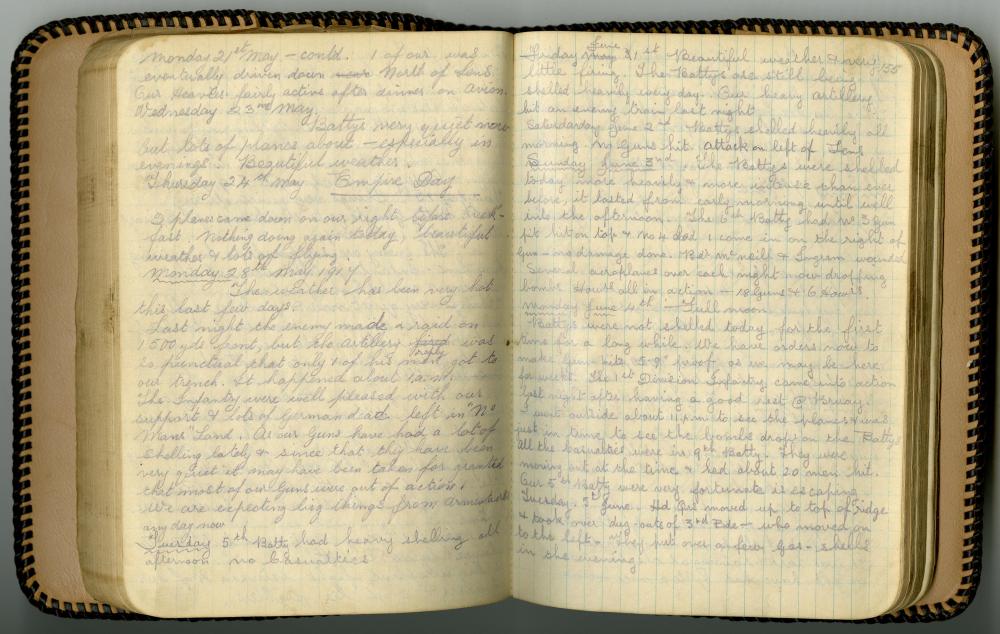 Monday 21st May – contd. 1 of our was
eventually driven down North of Lens.
Our Heavies fairly active after dinner on Avion.
Wednesday 23rd May.
Battys very quiet now
but lots of planes about – especially in
evenings. Beautiful weather.
Thursday 24th May Empire Day
2 planes came down on our right before break-
fast. Nothing doing again today, beautiful
weather & lots of flying.
Monday 28th May 1917
The weather has been very hot
this last few days.
Last night the enemy made a raid on
1500 yds front, but the artillery fired was
reply
so punctual that only 4 of his men got to
our trench. It happened about 1 a.m.
The Infantry were well pleased with our
support & lots of German dead left in "No
Mans" Land. As our Guns have had a lot of
shelling lately & since that, they have been
very quiet it may have been taken for granted
that most of our Guns were out of action.
We are expecting big things from
any day now
Tuesday 5th Batty had heavy shelling all
afternoon no Casualties
155
June
Friday May 31st Beautiful weather & very
little firing. The Battys are still being
shelled heavily every day. Our heavy artillery
hit an enemy train last night
Saturday June 2nd. Battys shelled heavily all
morning. No Guns hit. Attack on left of Lens
Sunday June 3rd. The Battys were shelled
today more heavily & more intense than ever
before, it lasted from early morning until well
into the afternoon. The 5th Batty had No 3 Gun
pit hit on top & No 4 had 1 come in on the right of
Gun – no damage done. Bdr McNeill & Ingram wounded
Several aeroplanes over each night now dropping
bombs. Hows all in action – 18 Guns & 6 Hows.
Monday June 4th. Full moon
Battys were not shelled today for the first
time for a long while. We have orders now to
make Gun pits 5.9" proof as we may be here
for weeks. The 1st Division Infantry came into action
last night after having a good rest @
I went outside about 11 p.m to see the planes & was
just in time to see the bombs drop on the Battys
All the casualties were in 9th Batty. They were
moving out at the time & had about 20 men hit.
Our 5th Batty were very fortunate is escaping
Tuesday 5th June. Hd Qrs moved up to top of ridge
& took over dug-outs of 3rd Bde – who moved on
to the left. They put over a few Gas-shells
in the evening